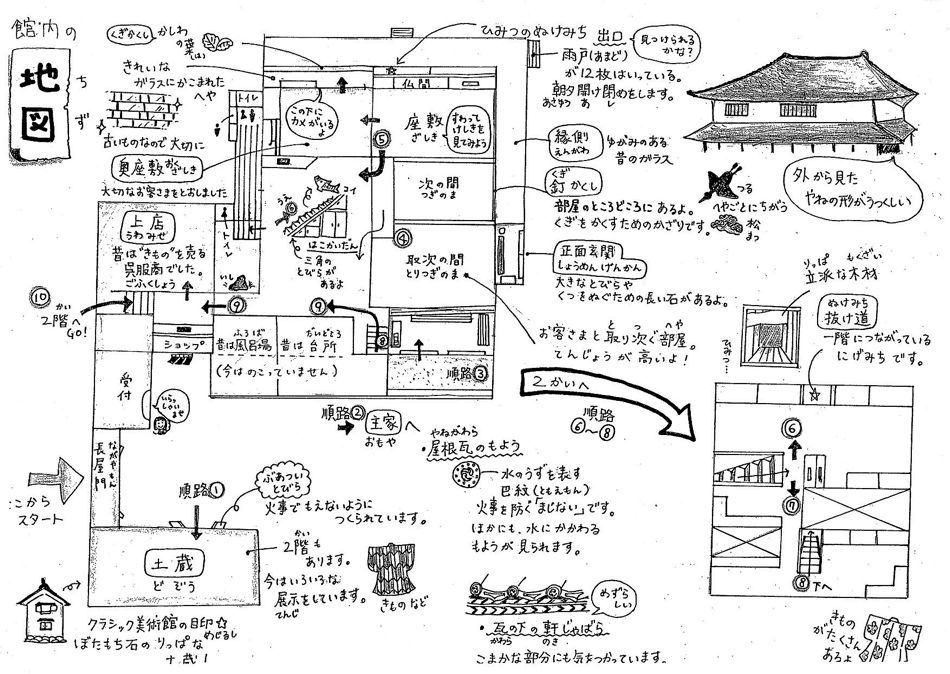 館内の
地図
ちず
くぎかくし
かしわ
の葉
(は)
ひみつのぬけみち 出口
見つけられる
かな?
雨戸(あまど)
が12枚はいっている。
朝夕開け閉めをします。
あさゆう あ し
きれいな
ガラスにかこまれた
へや
トイレ
古いものなので大切に
奥座敷おくざしき
大切なお客さまをとおしました
この下に
カメがいる
よ
仏間
座敷
ざしき
すわって
けしきを
見てみよう
⑤
縁側
えんがわ
ゆがみのある
昔のガラス
くぎ
釘かくし
部屋のところどころにあるよ。
くぎをかくすためのかざりです。
つる
へやごとにちがう
松
まつ
外から見た
やねの形がうつくしい
次の間
つぎのま
コイ
うえ
はこかいだん
三角の
とびらが
あるよ
④
取次の間
とりつぎのま
正面玄関
しょうめんげんかん
大きなとびらや
くつをぬぐための長い石があるよ。
りっぱ もくざい
立派な木材
ぬけみち
抜け道
一階につながっている
にげみちです。
ひみつ…
お客さまと取り次ぐ部屋。
と つ へや
てんじょうが高いよ!
上店
うわみせ
昔は"きもの"を売る
呉服商でした。
ごふくしょう
トイレ
いし
⑩
かい
2階へ
GO!
⑨
⑨
ショップ
ふろば
昔は風呂場
だいどころ
昔は台所
(今はのこっていません)
⑧
順路③
2かいへ
受付
いらっ
しゃい
ませ
順路②
主家へ
おもや
順路
⑥~⑧
長屋門
ながやもん
ここから
スタート
順路①
ぶあつい
とびら
火事でもえないように
つくられています。
土蔵
どぞう
かい
2階も
あります。
今はいろいろな
展示をしています。
てんじ
きものなど
クラシック美術館の目印☆
めじるし
ぼたもち石のりっぱな
土蔵!
やねがわら
・屋根瓦のもよう
水のうずを表す
巴紋(ともえもん)
火事を防ぐ「まじない」です。
ほかにも、水にかかわる
もようが見られます。
めずら
しい
・瓦の下の軒じゃばら
かわら のき
こまかな部分にも気をつかっています。
⑥
⑦
⑧下へ
きもの
がたくさん
あるよ